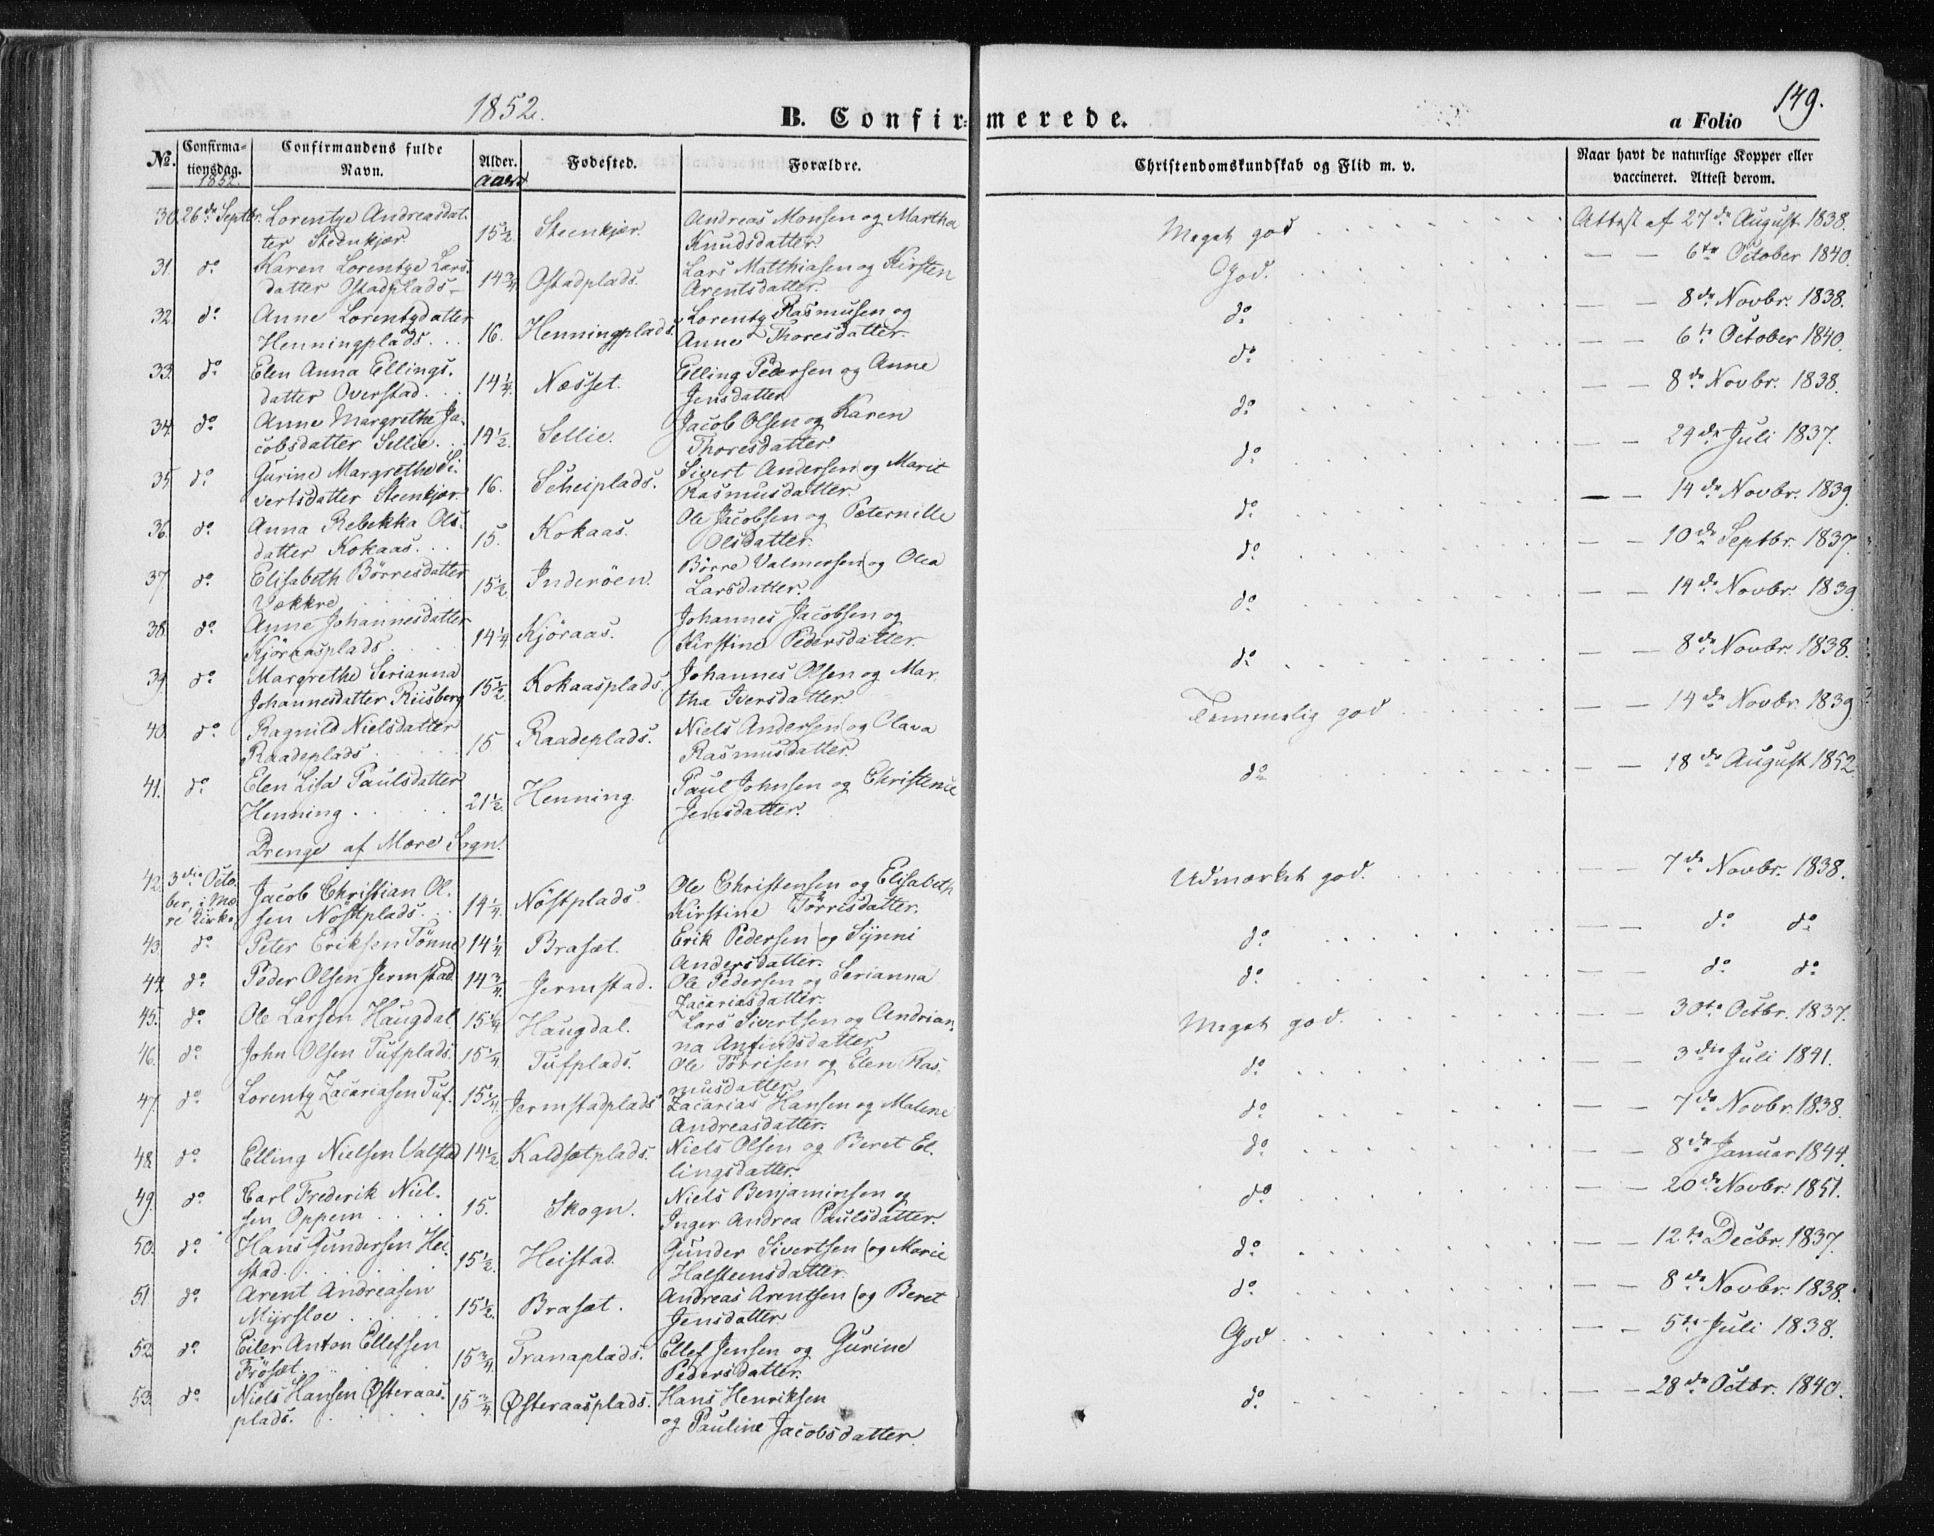 1852. B. Confirmerede. a Folio 149.
No. Confirmationsdag. Confirmandens fulde Navn. Alder. Fødested. Forældre. Christendomskundskab og Flid m. v. Naar havt de naturlige Kopper eller vaccineret. Attest derom.
1852. Aar
30. 26de Septbr. Lorentze Andreasdat- 15½ Steenkjær. Andreas Monsen og Martha Meget god Attest af 27de August 1838.
ter Steenkjær. Knudsdatter.
31. do Karen Lorentze Lars- 14¾ Østadplads. Lars Matthiasen og Kirsten God. — — 6te October 1840.
datter Østadplads. Arentsdatter.
32. do Anne Lorentzdatter 16. Henningplads. Lorentz Rasmusen og do — — 8de Novbr. 1838.
Henningplads. Anne Thoresdatter.
33. do Elen Anna Ellings- 14¼ Næsset. Elling Pedersen og Anne do — — 6te October 1840.
datter Overstad. Jensdatter
34. do Anne Margrethe Ja- 14½ Sellie. Jacob Olsen og Karen do — — 8de Novbr. 1838.
cobsdatter Sellie. Thoresdatter
35. do Gurine Margrethe Si- 16. Scheiplads. Sivert Andersen og Marit do — — 24de Juli 1837.
vertsdatter Steenkjær. Rasmusdatter.
36. do Anna Rebekka Ols- 15. Kokaas. Ole Jacobsen og Peternille do — — 14de Novbr. 1839.
datter Kokaas. Olsdatter.
37. do Elisabeth Börresdatter 15½ Inderöen. Börre Valmersen og Olea do — — 10de Septbr. 1837.
Vækkre Larsdatter.
38. do Anne Johannesdatter 14¼ Kjöraas. Johannes Jacobsen og do — — 14de Novbr. 1839.
Kjöraasplads. Kirstine Pedersdatter.
39. do Margrethe Serianna 15½ Kokaasplads. Johannes Olsen og Mar- do — — 8de Novbr. 1838.
Johannesdatter Riisberg tha Iversdatter.
40. do Ragnild Nielsdatter 15 Raadeplads. Niels Andersen og Olava Temmelig god — — 14de Novbr. 1839.
Raadeplads Rasmusdatter
41. do Elen Lisa Paulsdatter 21½ Henning. Paul Johnsen og Christence do — — 18de August 1852
Henning. Jensdatter.
Drenge af Mære Sogn.
42. 3die Octo- Jacob Christian Ol- 14¼ Nöstplads. Ole Christensen og Elisabeth Udmærket god. — — 7de Novbr. 1838.
ber, i Mæ- sen Nöstplads. Kirstine Törrisdatter.
re Kirke
43. do Peter Eriksen Tönne 14¼ Brasæt. Erik Pedersen og Synni do — — do do
Andersdatter.
44. do Peder Olsen Jermstad. 14¾ Jermstad. Ole Pedersen og Serianna do — — do do
Zacariasdatter.
45. do Ole Larsen Haugdal 15¼ Haugdal. Lars Sivertsen og Andrian- Meget god. — — 30te Octbr. 1837.
na Anfindsdatter
46. do John Olsen Tufplads. 15¼ Tufplads. Ole Törrisen og Elen Ras- do — — 3die Juli 1841.
musdatter.
47. do Lorentz Zacariasen Tuf. 15¼ Jermstadplads. Zacarias Hansen og Malene do — — 7de Novbr. 1838.
Andreasdatter.
48. do Elling Nielsen Valstad 14½ Kaldsætplads. Niels Olsen og Beret El- do — — 8de Januar 1844.
lingsdatter.
49. do Carl Frederik Niel- 15. Skogn. Niels Benjaminsen og do — — 20de Novbr. 1851.
sen Oppem Inger Andrea Paulsdatter.
50. do Hans Gundersen Hei- 15½ Heistad. Gunder Sivertsen og Marie do — — 12te Decbr. 1837.
stad. Halsteensdatter.
51. do Arent Andreasen 15½ Brasæt. Andreas Arentsen og Beret do — — 8de Novbr. 1838.
Myrsloe Jensdatter
52. do Eiler Anton Ellefsen 15¾ Tranaplads. Ellef Jensen og Gurine God — — 5te Juli 1838.
Frösæt. Pedersdatter.
53. do Niels Hansen Østeraas- 15¾ Østeraasplads. Hans Henriksen do — — 28de Octbr. 1840.
plads. og Pauline Jacobsdatter.